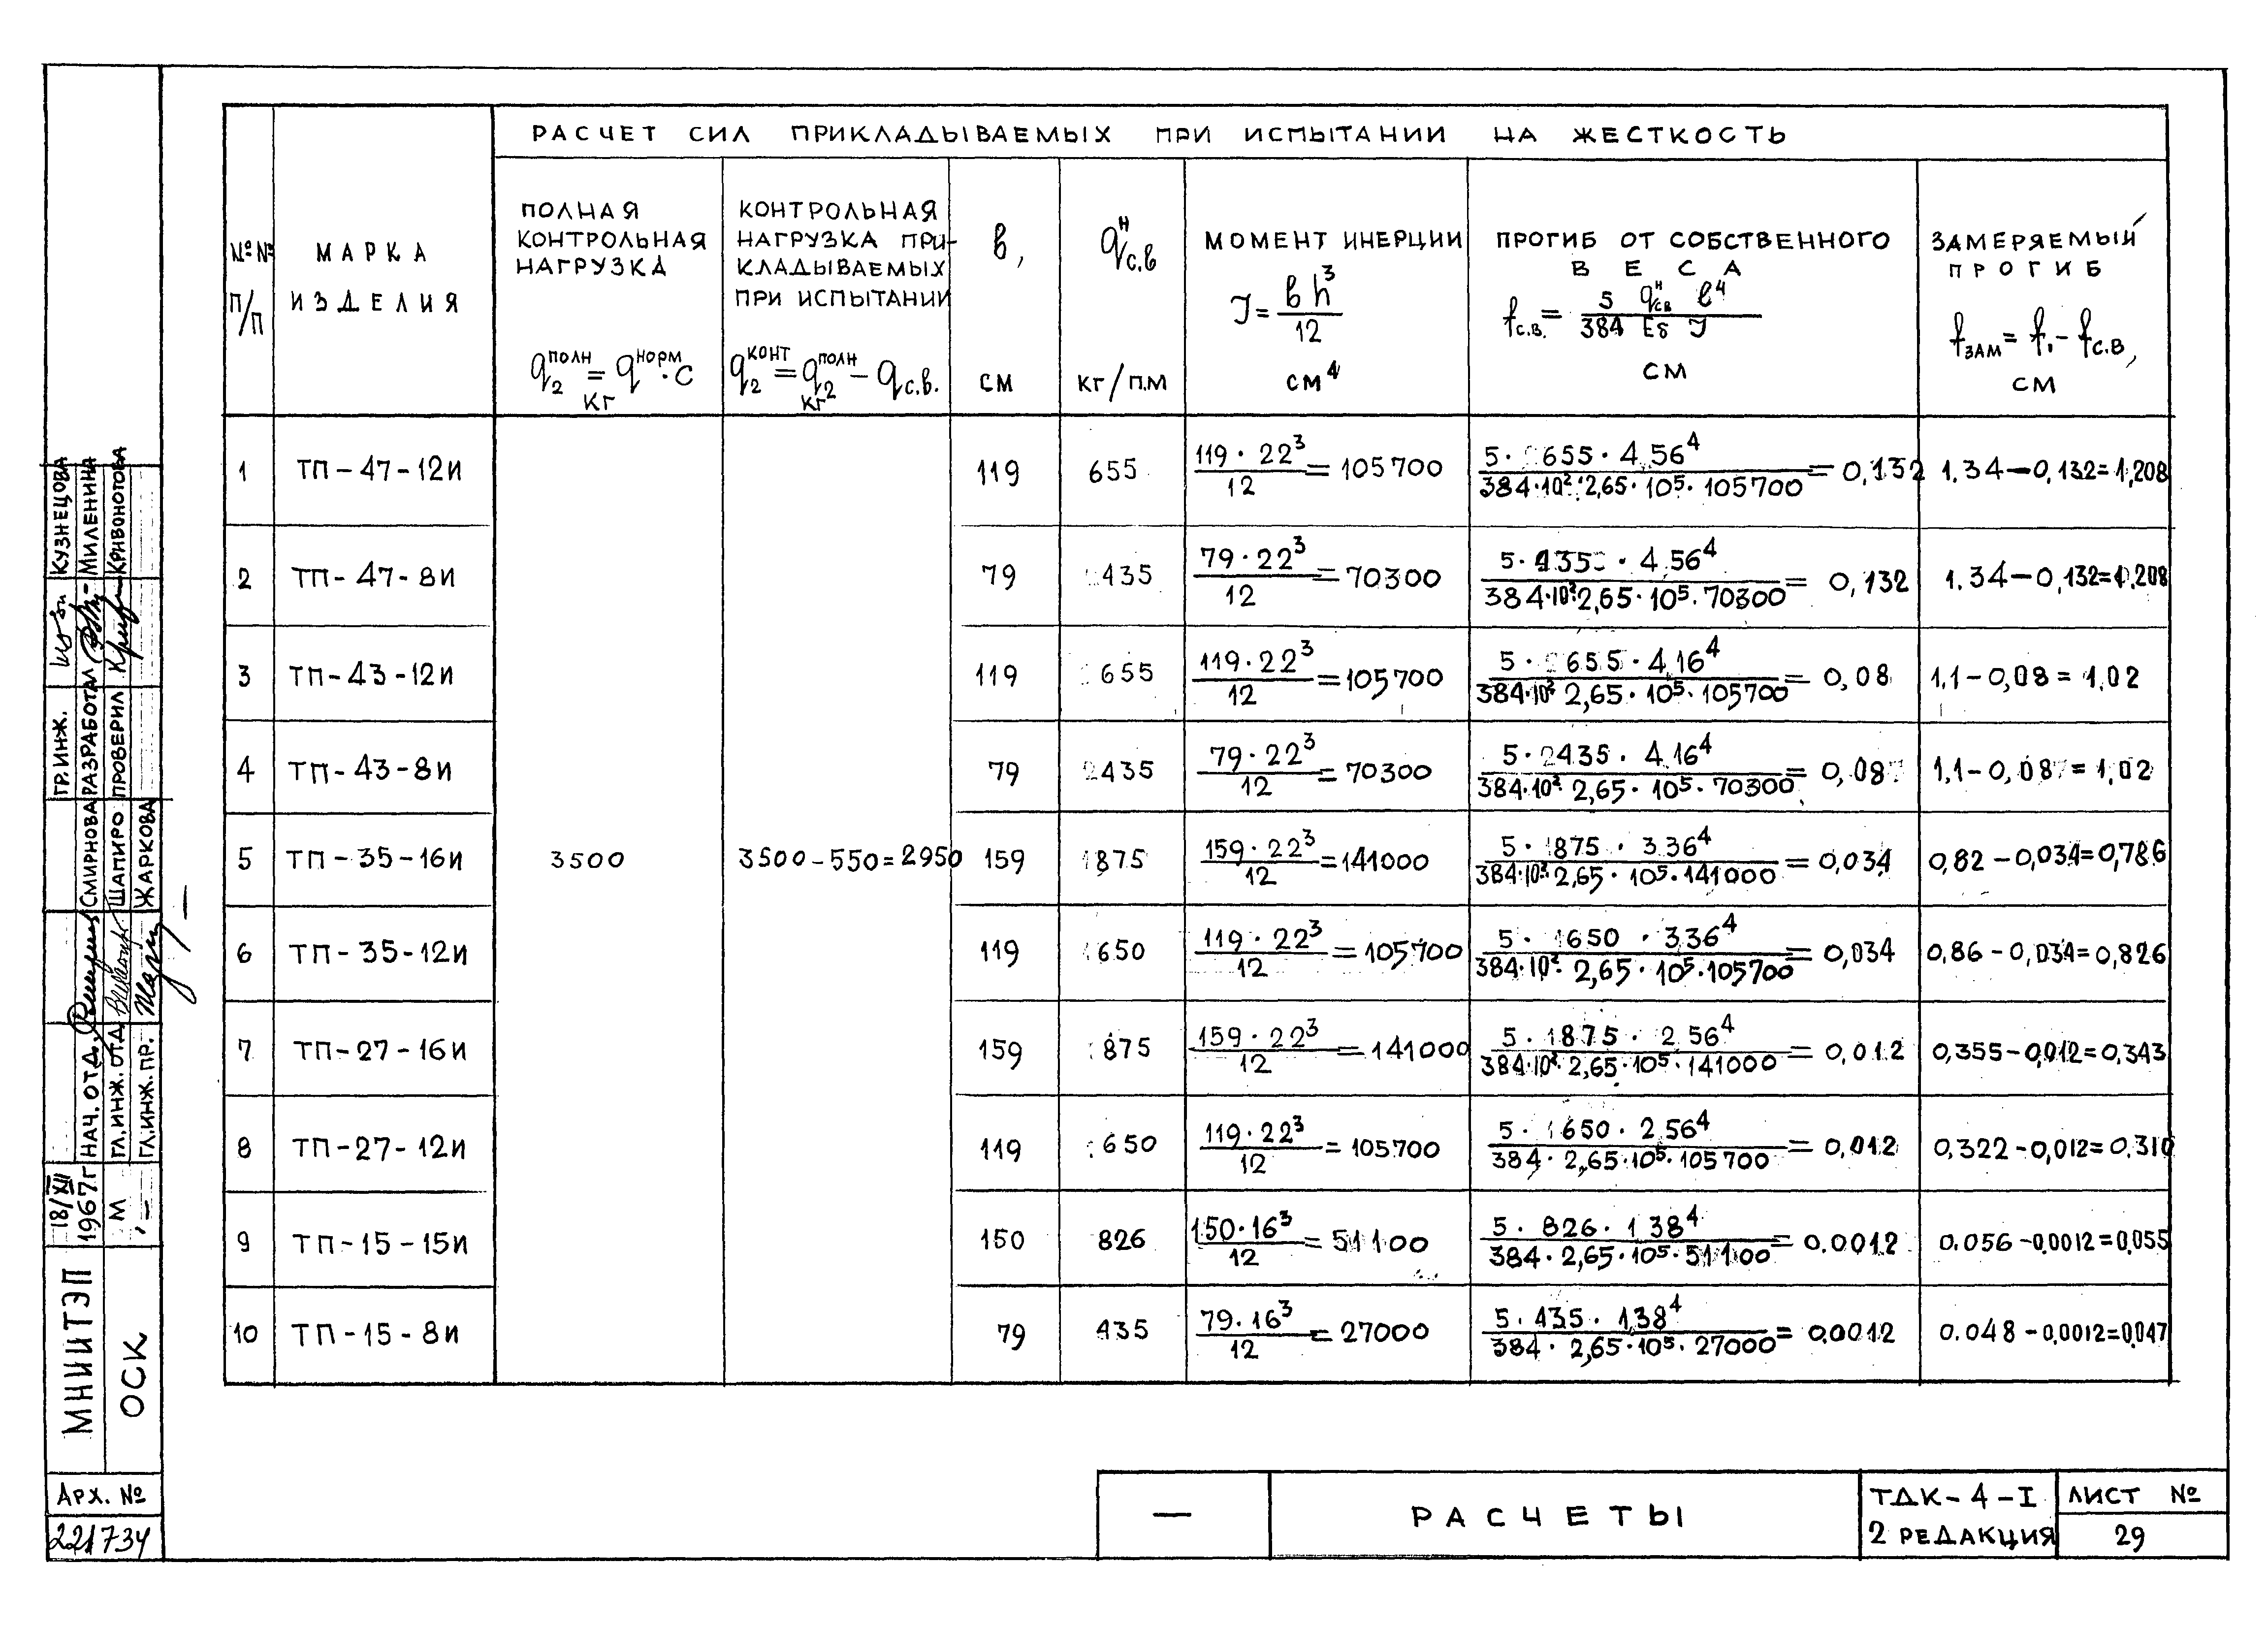 РАСЧЕТ СИЛ ПРИКЛАДЫВАЕМЫХ ПРИ ИСПЫТАНИИ НА ЖЕСТКОСТЬ
№№ П/П
МАРКА ИЗДЕЛИЯ
ПОЛНАЯ
КОНТРОЛЬНАЯ
НАГРУЗКА
q₂ᵖᵒˡⁿ = qᴴᴼᴾᴹ · C
КГ
КОНТРОЛЬНАЯ
НАГРУЗКА ПРИ-
КЛАДЫВАЕМЫХ
ПРИ ИСПЫТАНИИ
q₂ᴷᴼᴴᵀ = q₂ᴨᴼᴫᴴ - qс.в.
КГ
в,
СМ
qᴴс.в
КГ/П.М
МОМЕНТ ИНЕРЦИИ
J = вh³/12
СМ⁴
ПРОГИБ ОТ СОБСТВЕННОГО
ВЕСА
fс.в. = 5 qᴴсв ℓ⁴ / 384 Eб J
СМ
ЗАМЕРЯЕМЫЙ
ПРОГИБ
fЗАМ = f₁ - fс.в,
СМ
1 ТП-47-12И 119 655 119·22³/12 = 105700 5·655·4,56⁴/384·10²·2,65·10⁵·105700 = 0,132 1.34-0,132=1,208
2 ТП-47-8И 79 435 79·22³/12 = 70300 5·435·4,56⁴/384·10²·2,65·10⁵·70300 = 0,132 1.34-0,132=1,208
3 ТП-43-12И 119 655 119·22³/12 = 105700 5·655·4,16⁴/384·10² 2,65·10⁵·105700 = 0,08 1,1-0,08=1,02
4 ТП-43-8И 79 2435 79·22³/12 = 70300 5·2435·4,16⁴/384·10² 2,65·10⁵·70300 = 0,087 1,1-0,087=1,02
5 ТП-35-16И 3500 3500-550=2950 159 875 159·22³/12 = 141000 5·1875·3.36⁴/384·10² 2,65·10⁵·141000 = 0,034 0,82-0,034=0,786
6 ТП-35-12И 119 650 119·22³/12 = 105700 5·1650·3.36⁴/384·10² 2,65·10⁵·105700 = 0,034 0,86-0,034=0,826
7 ТП-27-16И 159 875 159·22³/12 = 141000 5·1875·2.56⁴/384·10²·2,65·10⁵·141000 = 0,012 0,355-0,012=0,343
8 ТП-27-12И 119 650 119·22³/12 = 105700 5·1650·2,56⁴/384·2,65·10⁵·105700 = 0,012 0,322-0,012=0,310
9 ТП-15-15И 150 826 150·16³/12 = 51100 5·826·1.38⁴/384·2,65·10⁵·51100 = 0.0012 0.056-0.0012=0,055
10 ТП-15-8И 79 435 79·16³/12 = 27000 5·435·1,38⁴/384·2,65·10⁵·27000 = 0.0012 0.048-0,0012=0,047
КУЗНЕЦОВА
МИЛЕНИНА
КРИВОНОГОВА
ГР. ИНЖ.
РАЗРАБОТАЛ
ПРОВЕРИЛ
СМИРНОВА
ШАПИРО
ЖАРКОВА
НАЧ. ОТД.
ГЛ. ИНЖ. ОТД.
ГЛ. ИНЖ. ПР.
18/XII
1967.Г
М
МНИИТЭП
ОСК
АРХ. №
221734
—
РАСЧЕТЫ
ТДК-4-I
2 РЕДАКЦИЯ
ЛИСТ №
29